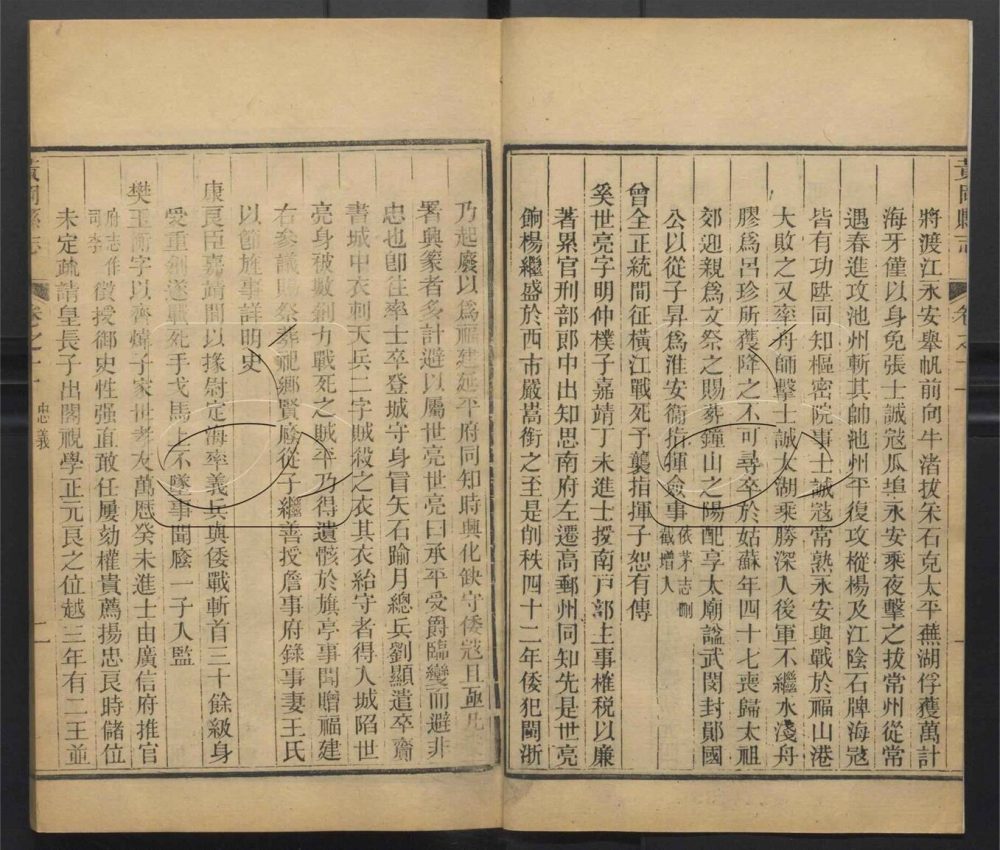 黃岡縣志
卷之十
將渡江永安舉帆前向牛渚拔朱石克太平蕪湖俘獲萬計
海牙僅以身免張士誠寇瓜埠永安乘夜擊之拔常州從常
遇春進攻池州斬其帥池州平復攻樅楊及江陰石牌海寇
皆有功陞同知樞密院事士誠寇常熟永安與戰於福山港
大敗之又率舟師擊士誠太湖乘勝深入後軍不繼水淺舟
膠爲呂珍所獲降之不可尋卒於姑蘇年四十七喪歸太祖
郊迎親爲文祭之賜葬鐘山之陽配享太廟諡武閔封鄖國
公以從子昇爲淮安衞指揮僉事依茅志刪截增入
曾全正統間征橫江戰死予襲指揮子恕有傳
奚世亮字明仲樸子嘉靖丁未進士授南戸部主事榷税以廉
著累官刑部郎中出知思南府左遷高郵州同知先是世亮
餉楊繼盛於西市嚴嵩銜之至是削秩四十二年倭犯閩浙
乃起廢以爲福建延平府同知時興化缺守倭寇且亟凡
署興篆者多計避以屬世亮世亮曰承平受爵臨變而避非
忠也卽往率士卒登城守身冒矢石踰月總兵劉顯遣卒齎
書城中衣刺天兵二字賊殺之衣其衣紿守者得入城陷世
亮身被數創力戰死之賊平乃得遺骸於旗亭事聞贈福建
右參議賜祭葬祀鄉賢廕從子繼善授詹事府錄事妻王氏
以節旌事詳明史
康良臣嘉靖間以掾尉定海率義兵與倭戰斬首三十餘級身
受重創遂戰死手戈馬上不墜事聞廕一子入監
樊玉衡字以齊煒子家世孝友萬厯癸未進士由廣信府推官
府志作司李徵授御史性强直敢任屢劾權貴薦揚忠良時儲位
未定疏請皇長子出閣視學正元良之位越三年有二王並
黃岡縣志
卷之十
忠義
二